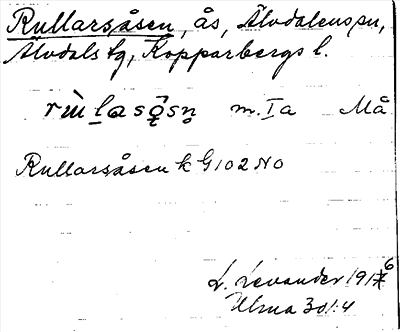 Rullarsåsen, ås, Älvdalens sn,
Älvdals tg, Kopparbergs l.
m. Ia Må
Rullarsåsen k G102 NO
L. Levander 1916
Ulma 301:4